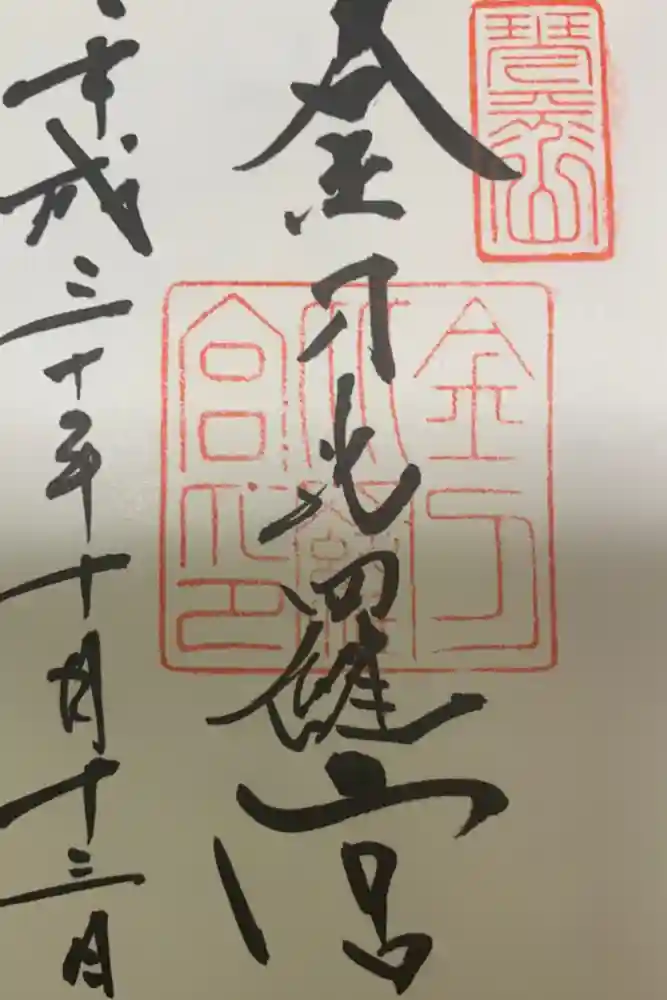 琴平山
金刀比羅宮
金刀
比羅
宮印
平成三十年十月十三日